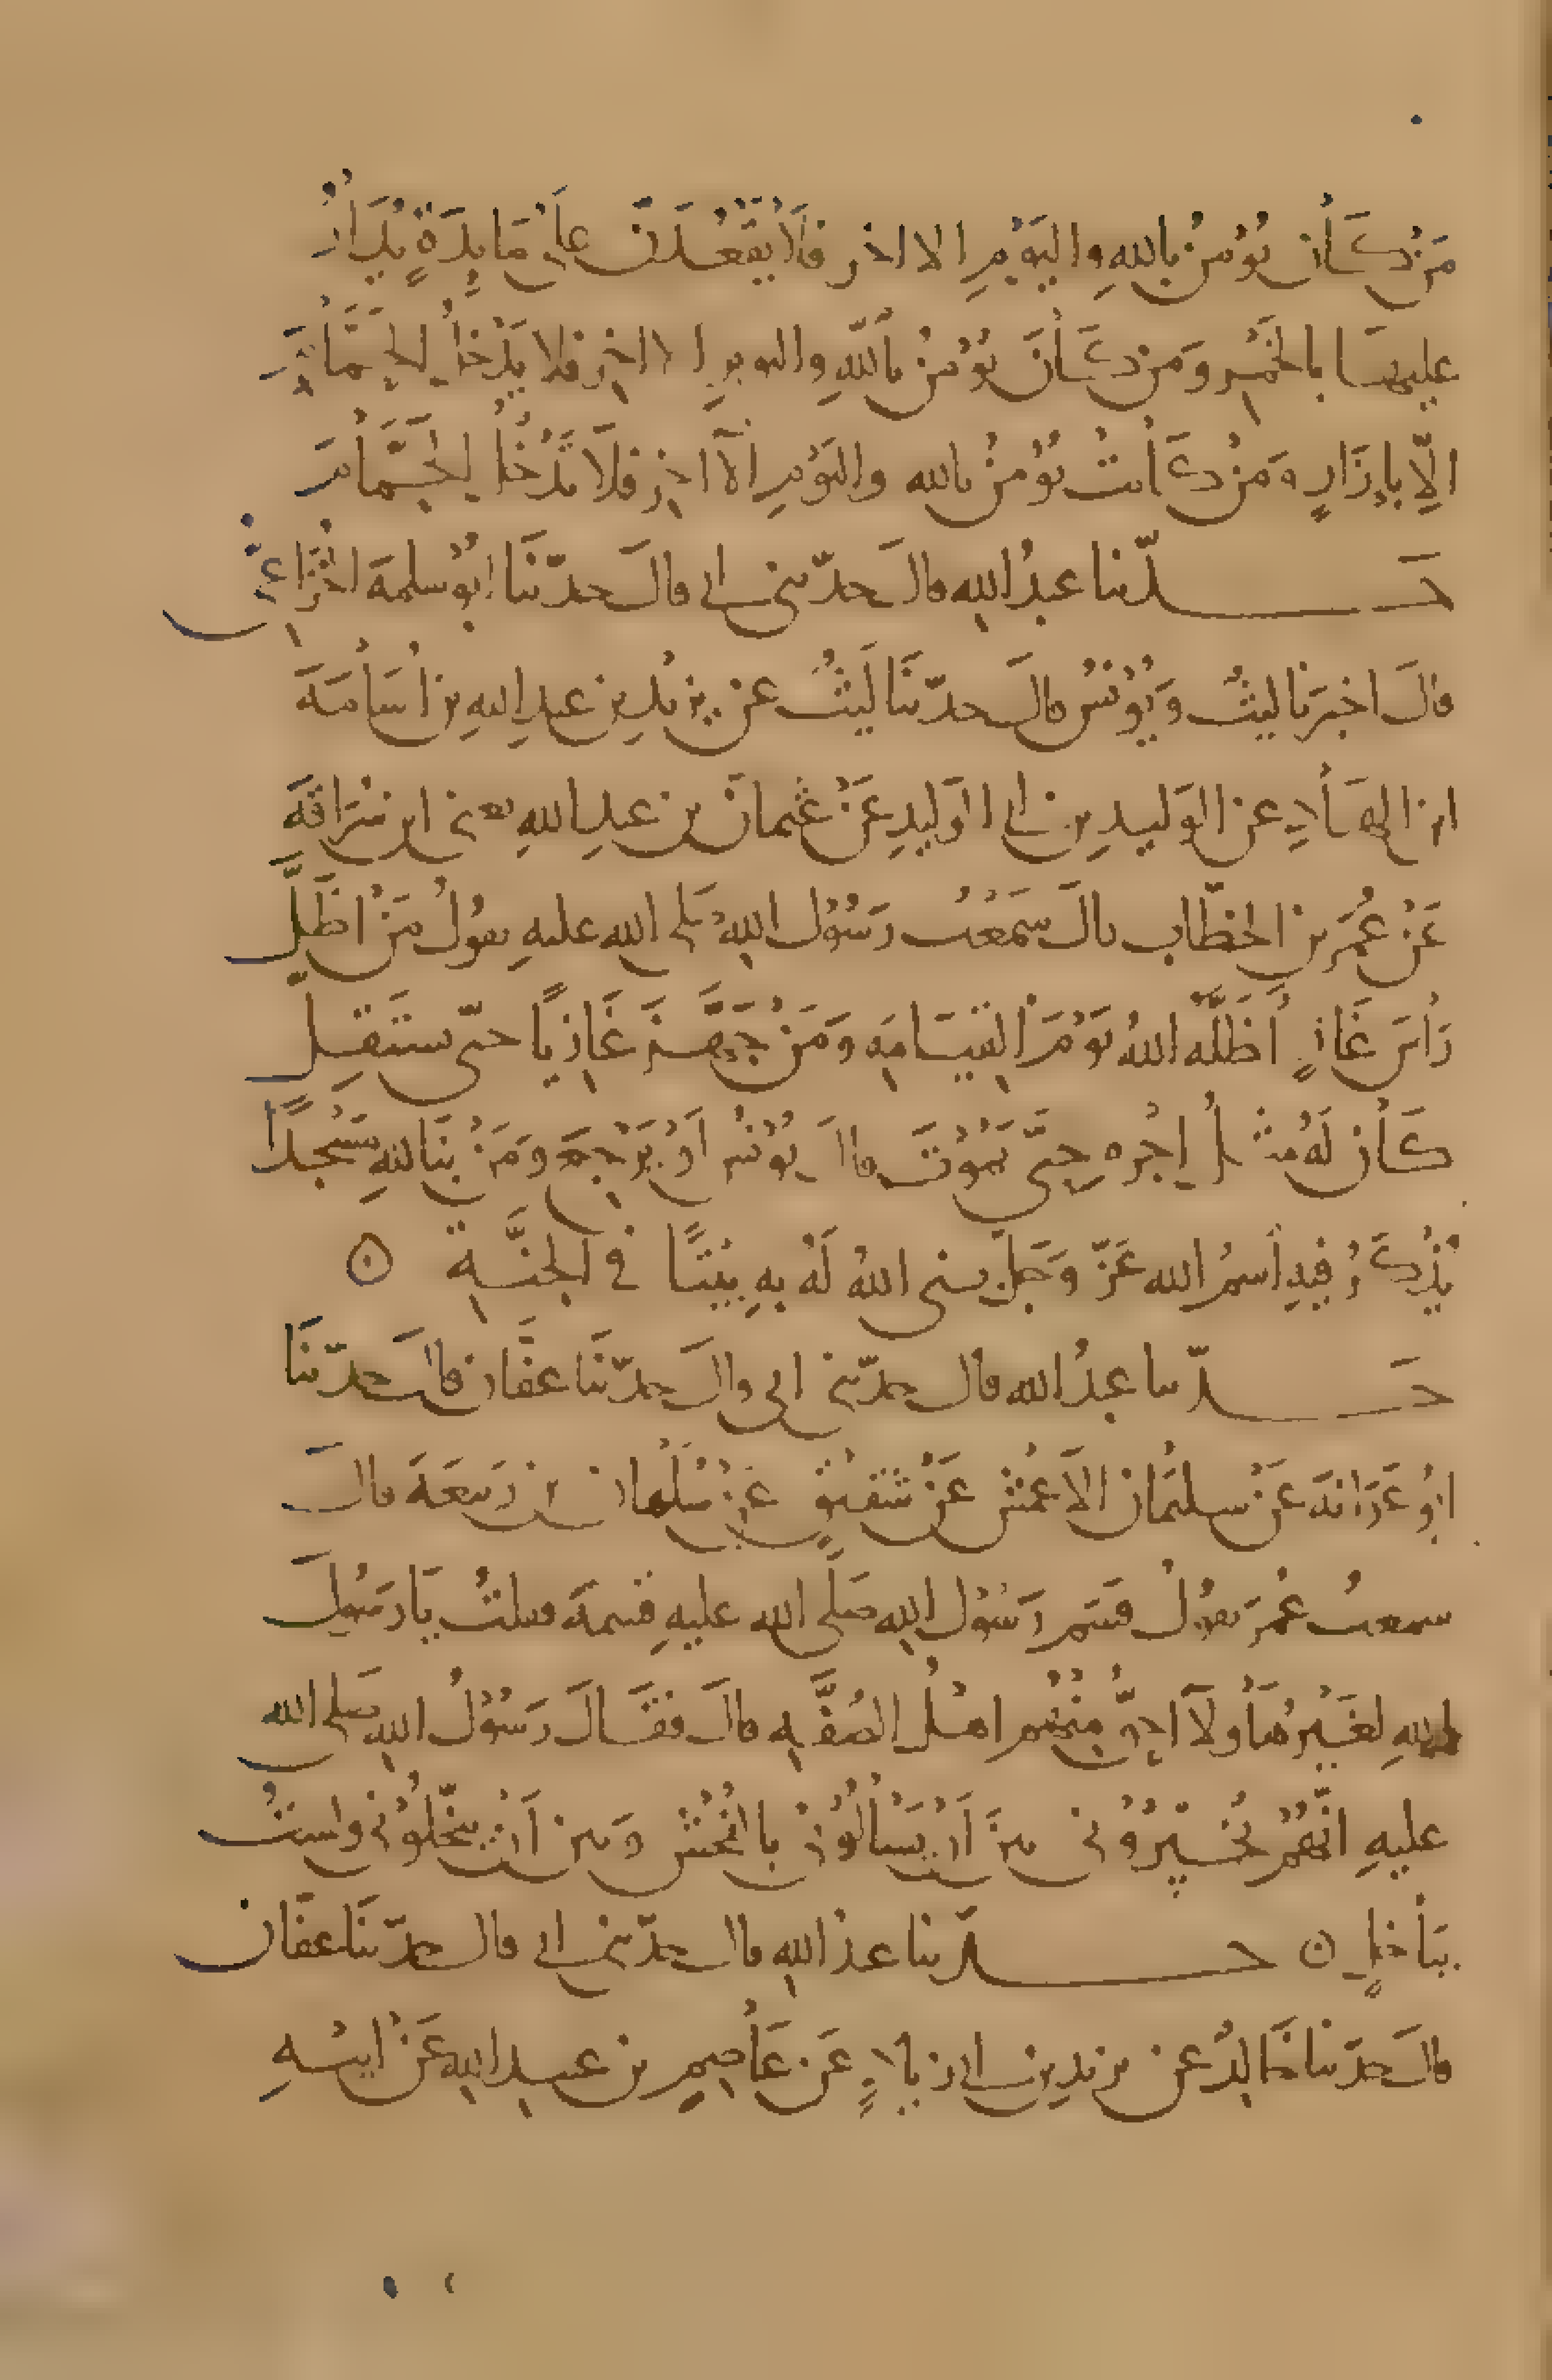 مَنْ كَانَ يُؤْمِنُ بِاللهِ وَاليَوْمِ الاخر فَلَا يَقْعُدَنَّ عَلَى مَايِدَةٍ يُدَارُ
عليها بالخَمْرِ وَمَن كَانَ يُؤْمِنُ بِاللهِ واليومِ الاخِرِ فلا يَدْخُلِ الحَمَّامَ
الّا بإِزَارٍ وَمَنْ كَانتْ تُؤْمِنُ بالله واليَوْمِ الآخِرِ فلَا تَدْخُلِ الحَمَّامَ
حَدّثنا عبدُ اللهِ قالَ حدّثني ابي قالَ حدّثنَا ابُو سلمةَ الخُزَاعِيُّ
قالَ اخبَرَنا ليثٌ وَيُونُسُ قالَ حدّثنَا لَيْثٌ عن يزيدِ بنِ عبدِ اللهِ بن اُسَامَةَ
ابن الهَادِ عن الوَليدِ بن ابي الوَليدِ عَنْ عُثمانَ بنِ عبدِ اللهِ يعني ابن سُرَاقَةَ
عَنْ عُمَرَ بنِ الخطّابِ قالَ سَمِعْتُ رَسُوْل اللهِ صَلى الله عليهِ يقولُ مَنْ اظَلَّ
رَأسَ غَازٍ أَظَلَّهُ اللهُ يَوْمَ القيَامَهِ وَمَنْ جَهَّزَ غَازِيًا حتّى يستَقِلَّ
كَانَ لَهُ مثلُ اجْرِهِ حتَّى يَمُوْتَ قالَ يُونُسُ اَوْ يَرْجِعَ وَمَنْ بنَا للهِ مَسْجِدًا
يُذْكَرُ فيهِ اسمُ الله عَزّ وَجَلّ بنى اللهُ لَهُ بهِ بَيْتًا في الجنَّةِ ن
حَدّثنا عبدُ الله قال حدّثني ابي قالَ حدّثنَا عفّان قالَ حدّثنَا
ابُو عَوَانةَ عَنْ سليمَانَ الاَعْمَشِ عَنْ شَقيْقٍ عَنْ سَلْمانَ بنِ رَبيعَةَ قالَ
سمعتُ عُمَرَ يقولُ قسَم رَسُوْل اللهِ صَلّى الله عليهِ قسمةً فقلتُ يَا رَسُولَ
اللهِ لغَيْرُ هٰؤلآءِ احقُّ منْهُم اهْلُ الصُفَّهِ قالَ فقَالَ رَسُوْلُ اللهِ صَلى الله
عليهِ انّهُمْ يُخيِّرُوْني بينَ اَنْ يَسْألُوْني بالفُحْشِ وَبين اَنْ يبخّلُوْني ولستُ
ببَاخلٍ ن حدّثنا عبدُ اللهِ قال حدّثني ابي قال حدّثنَا عفّان
قالَ حدّثنا خَالِدٌ عن يزيدِ بن ابي زيادٍ عَن عَاصِمٍ بن عبيد اللهِ عَنْ ابيْهِ